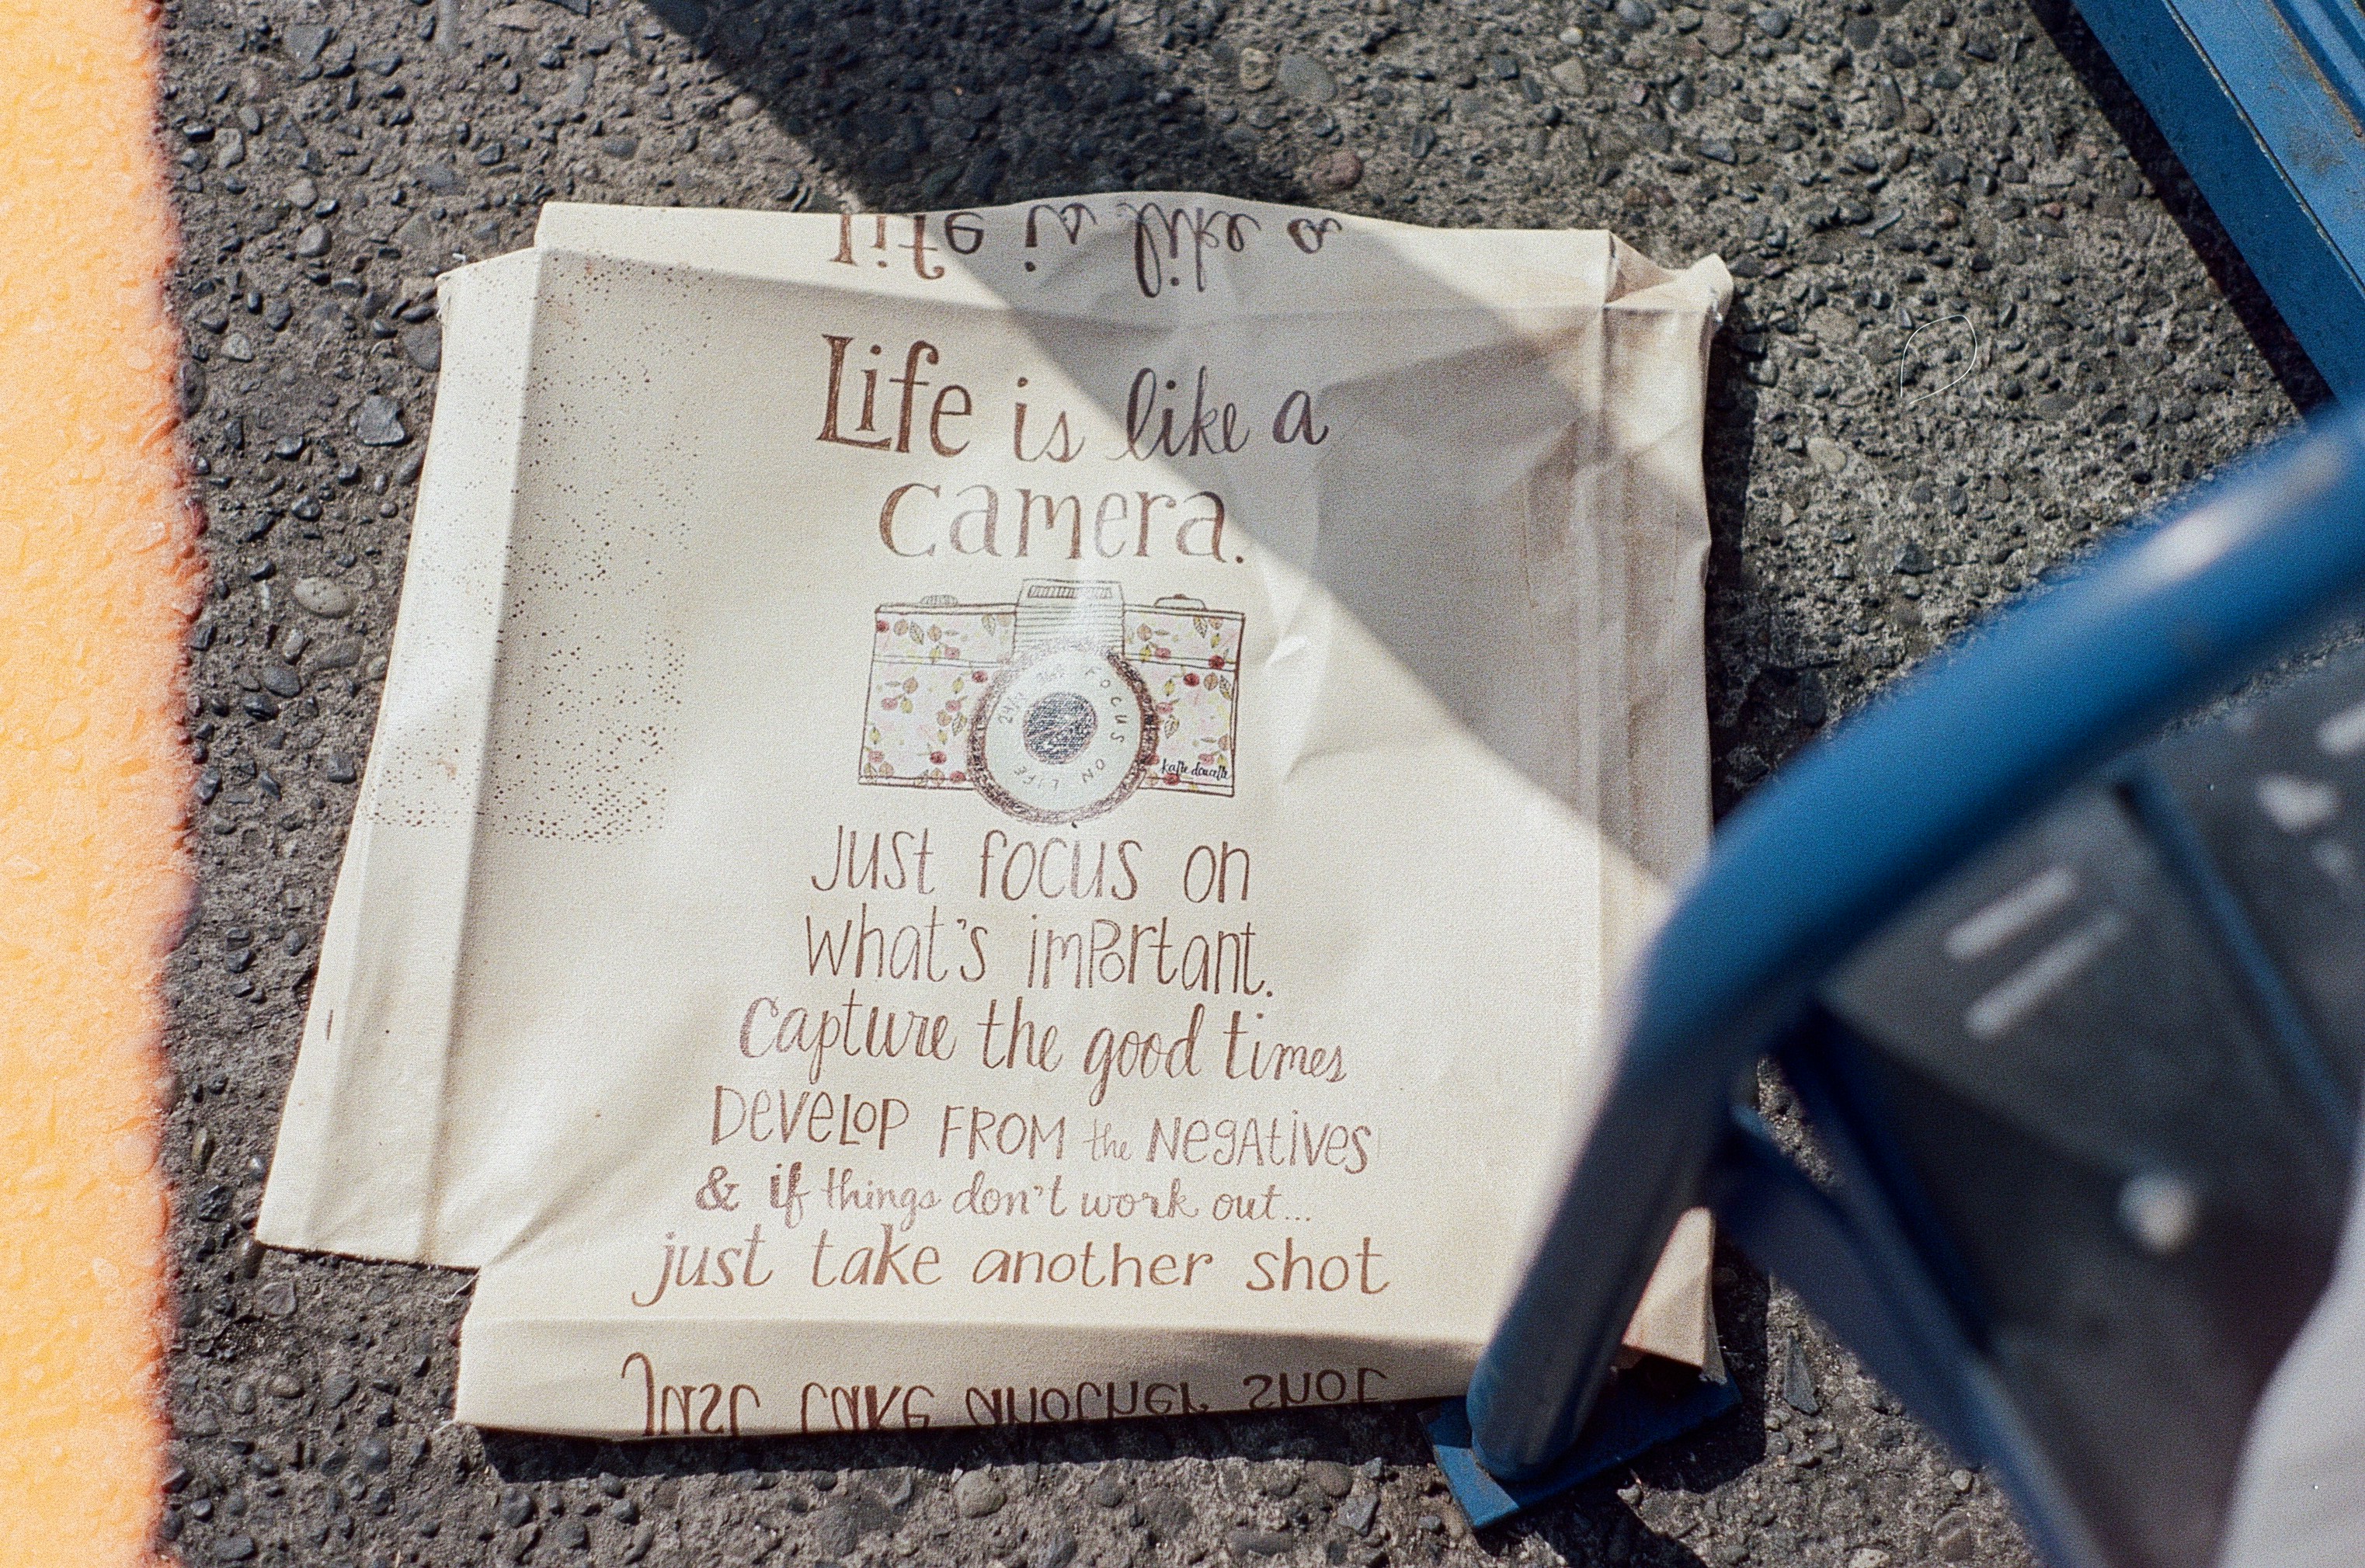 Life is like a
Life is like a
camera.
24/7 365 FOCUS ON LIFE
katie doucette
Just focus on
what's imPortant.
Capture the good times
DEVELOP FROM the NegAtives
& if things don't work out...
just take another shot
Just take another shot